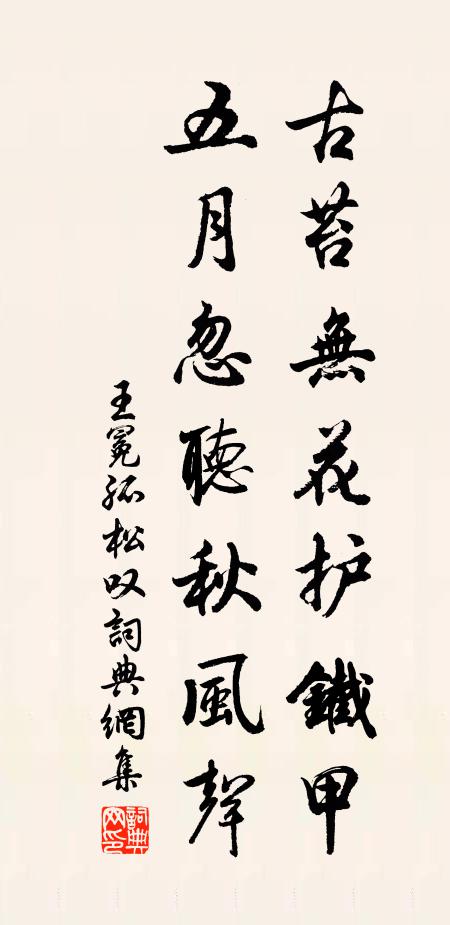 古苔無花护鐵甲
五月忽聽秋風聲
王冕孤松叹詞典網集
詞典網印